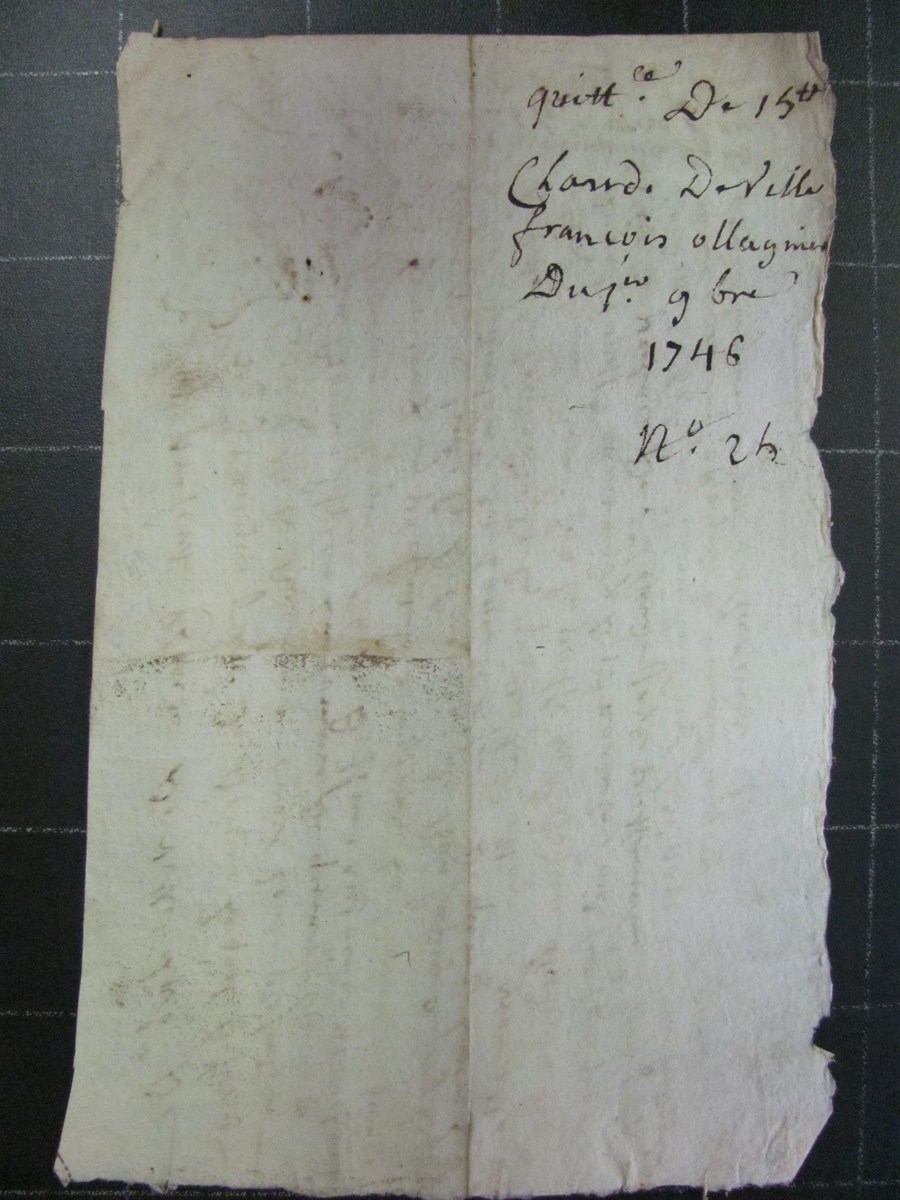 quitt.ce De 15 tt
Claude DeVille
françois ollagnier
Du 1er 9bre
1746
No. 25